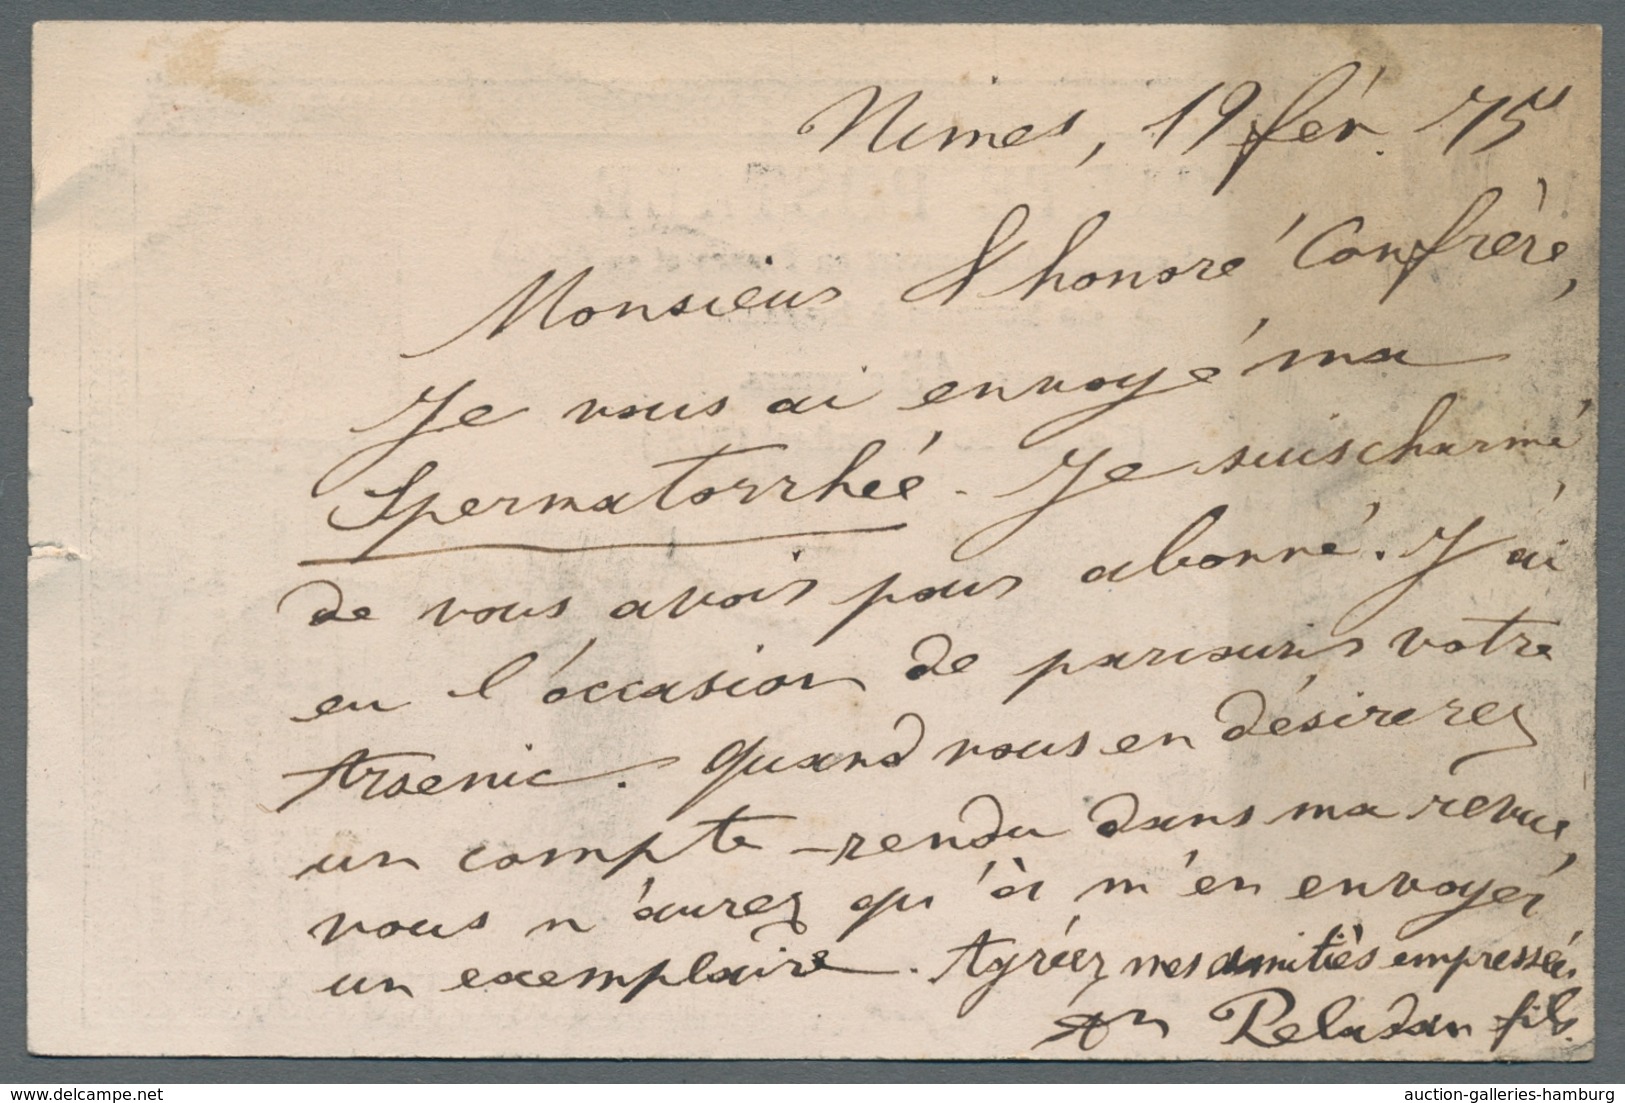 Nimes, 19 fév. 75
Monsieur & honoré Confrère,
Je vous ai envoyé ma
Spermatorrhée. Je suis charmé,
de vous avoir pour abonné. J'ai
eu l'occasion de parcourir votre
Arsenic. Quand vous en désirerez
un compte-rendu dans ma revue,
vous n'aurez qu'à m'en envoyer
un exemplaire. Agréez mes amitiés empressées
Peladan fils.
auction-galleries-hamburg